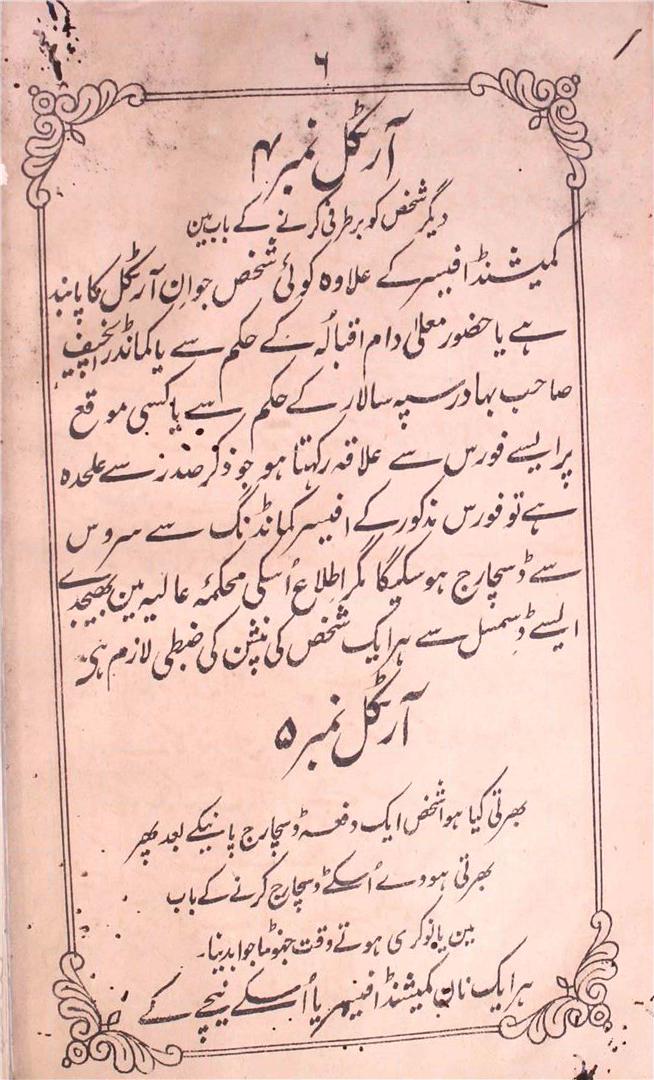 ۶
آرٹکل نمبر ۴
دیگر شخص کو برطرفی کرنے کے باب مین
کمیشنڈ افیسر کے علاوہ کوئی شخص جو ان آرٹکل کا پابند
ہے یا حضور معلیٰ دام اقبالہ کے حکم سے یا کمانڈر انچیف
صاحب بہادر سپہ سالار کے حکم سے یا کسی موقع
پر ایسے فورس سے علاقہ رکہتا ہو جو ذکر صدر سے علحدہ
ہے تو فورس مذکور کے افیسر کمانڈنگ سے سروس
سے ڈسچارج ہو سکیگا مگر اطلاع اُسکی محکمۂ عالیہ مین بھیجدے
ایسے ڈسمسل سے ہر ایک شخص کی پنشن کی ضبطی لازم ہی
آرٹکل نمبر ۵
بھرتی کیا ہوا شخص ایک دفعہ ڈسچارج پانیکے بعد پھر
بھرتی ہووے اُسکے ڈسچارج کرنے کے باب
مین یا نوکری ہوتے وقت جہوٹا جواب دینا۔
ہر ایک نان کمیشنڈ افیسر یا اُسکے نیچے کے